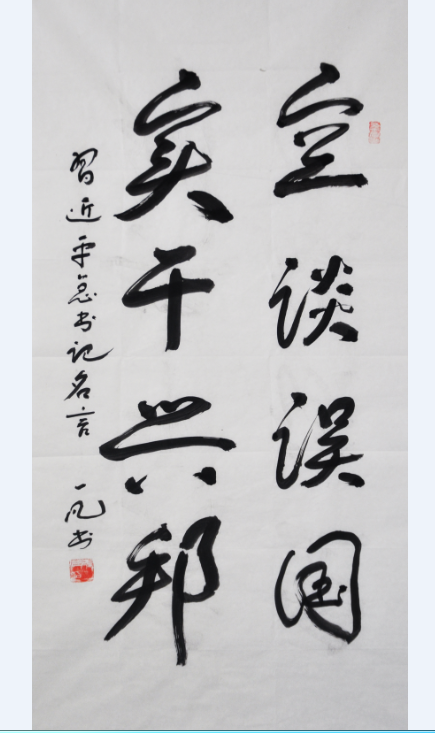 空谈误国
实干兴邦
习近平总书记名言
一凡书